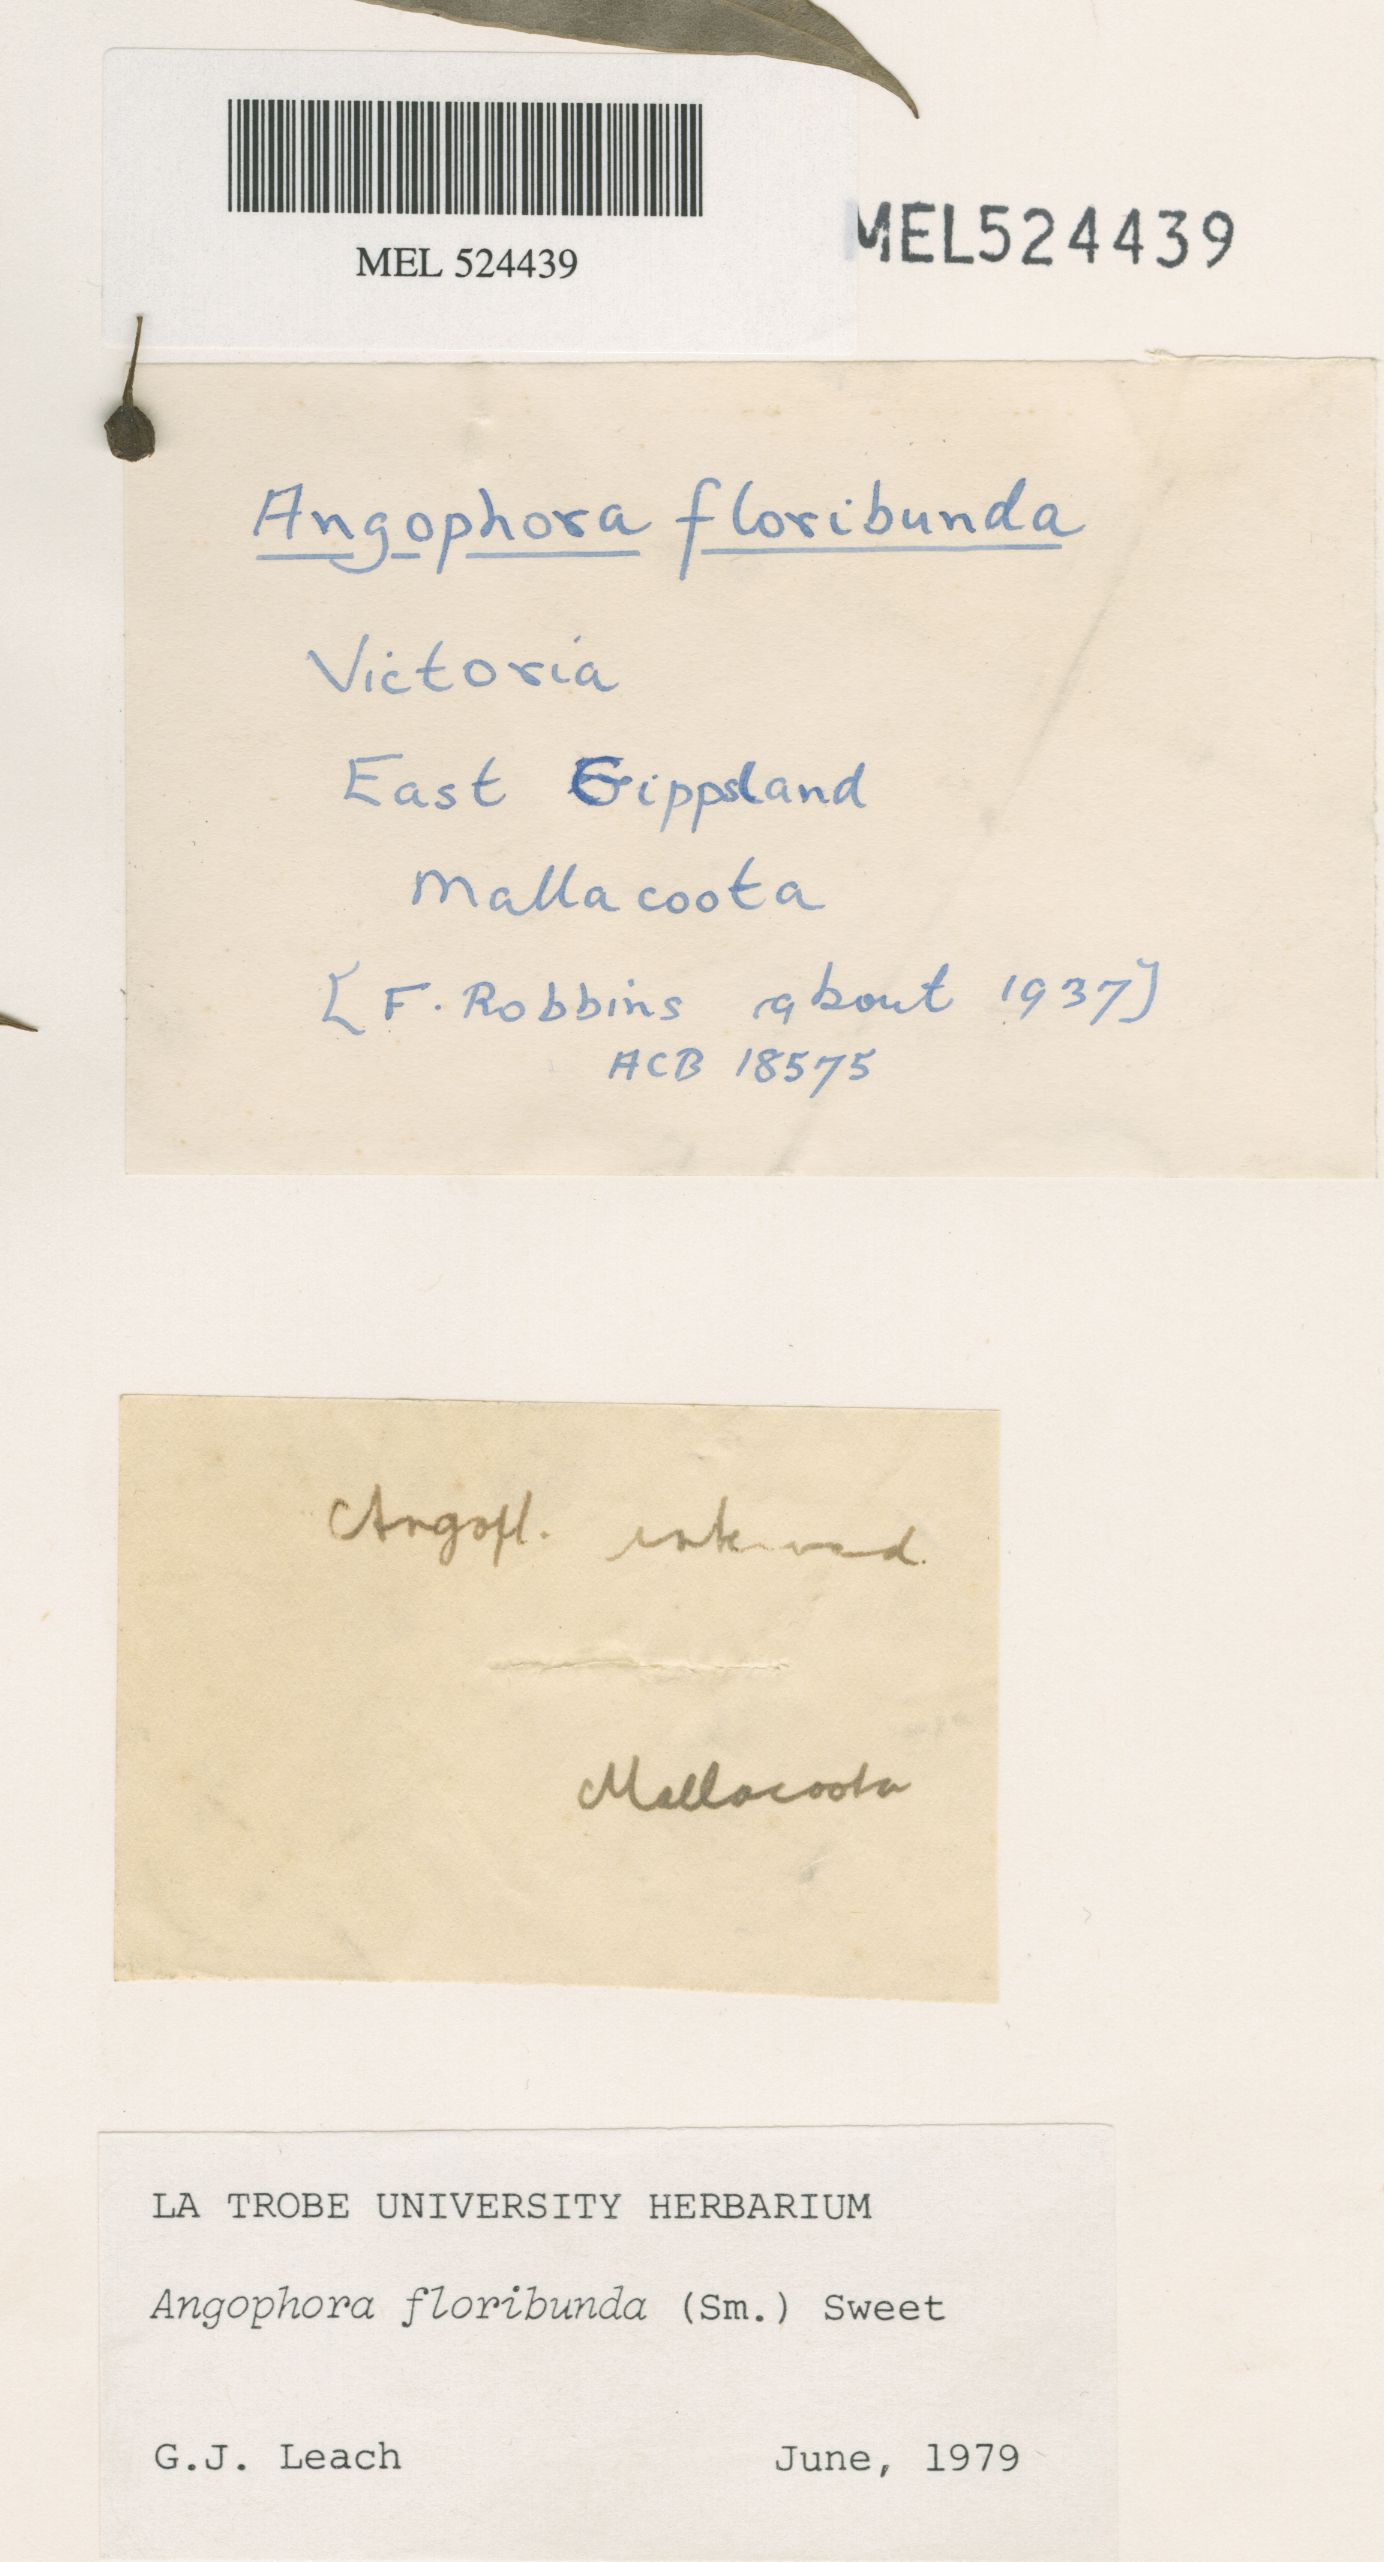 MEL 524439
MEL524439
Angophora floribunda
Victoria
East Gippsland
Mallacoota
[F. Robbins about 1937]
ACB 18575
Mallacoota
LA TROBE UNIVERSITY HERBARIUM
Angophora floribunda (Sm.) Sweet
G.J. Leach June, 1979